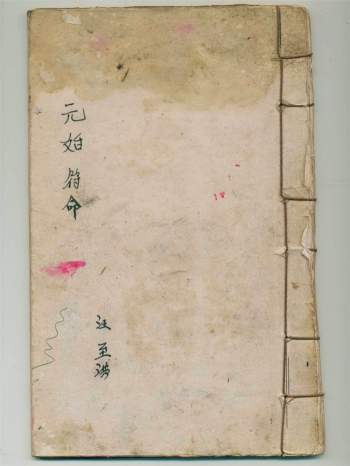 元始符命
汪至瑛